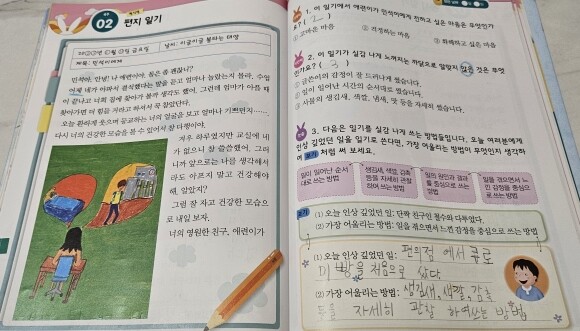 02
편지 일기
날씨: 이글이글 불타는 태양
제목: 민석이에게
민석아, 안녕! 나 예련이야. 몸은 좀 괜찮니?
어제 네가 아파서 결석했다는 말을 듣고 얼마나 놀랐는지 몰라. 수업
이 끝나고 너희 집에 찾아가 볼까 생각도 했어. 그런데 엄마가 아플 때
찾아가면 더 힘들 거라고 하셔서 꾹 참았단다.
오늘 환하게 웃으며 등교하는 너의 얼굴을 보고 얼마나 기뻤던지…….
다시 너의 건강한 모습을 볼 수 있어서 참 다행이야.
겨우 하루였지만 교실에 네
가 없으니 참 쓸쓸했어. 그러
니까 앞으로는 나를 생각해서
라도 아프지 말고 건강해야
해, 알았지?
그럼 잘 자고 건강한 모습으
로 내일 보자.
너의 영원한 친구, 예련이가
1. 이 일기에서 예련이가 민석이에게 전하고 싶은 마음은 무엇인가
요? ( 2 )
① 고마운 마음
② 걱정하는 마음
③ 화해하고 싶은 마음
2. 이 일기가 실감 나게 느껴지는 까닭으로 알맞지 않은 것은 무엇
인가요? ( 3 )
① 글쓴이의 감정이 잘 드러나게 썼습니다.
② 일이 일어난 시간의 순서대로 썼습니다.
③ 사물의 생김새, 색깔, 냄새, 맛 등을 자세히 썼습니다.
3. 다음은 일기를 실감 나게 쓰는 방법들입니다. 오늘 여러분에게
인상 깊었던 일을 일기로 쓴다면, 가장 어울리는 방법이 무엇인지 생각하
여 보기 처럼 써 보세요.
일이 일어난 순서
대로 쓰는 방법
생김새, 색깔, 감촉
등을 자세히 관찰
하여 쓰는 방법
일의 원인과 결과
를 중심으로 쓰는
방법
일을 겪으면서 느
낀 감정을 중심으
로 쓰는 방법
보기
(1) 오늘 인상 깊었던 일: 단짝 친구인 철수와 다투었다.
(2) 가장 어울리는 방법: 일을 겪으면서 느낀 감정을 중심으로 쓰는 방법
(1) 오늘 인상 깊었던 일: 편의점 에서
처음으로 샀다.
(2) 가장 어울리는 방법: 생김새, 색깔, 감촉
등을 자세히 관찰 하여쓰는 방법